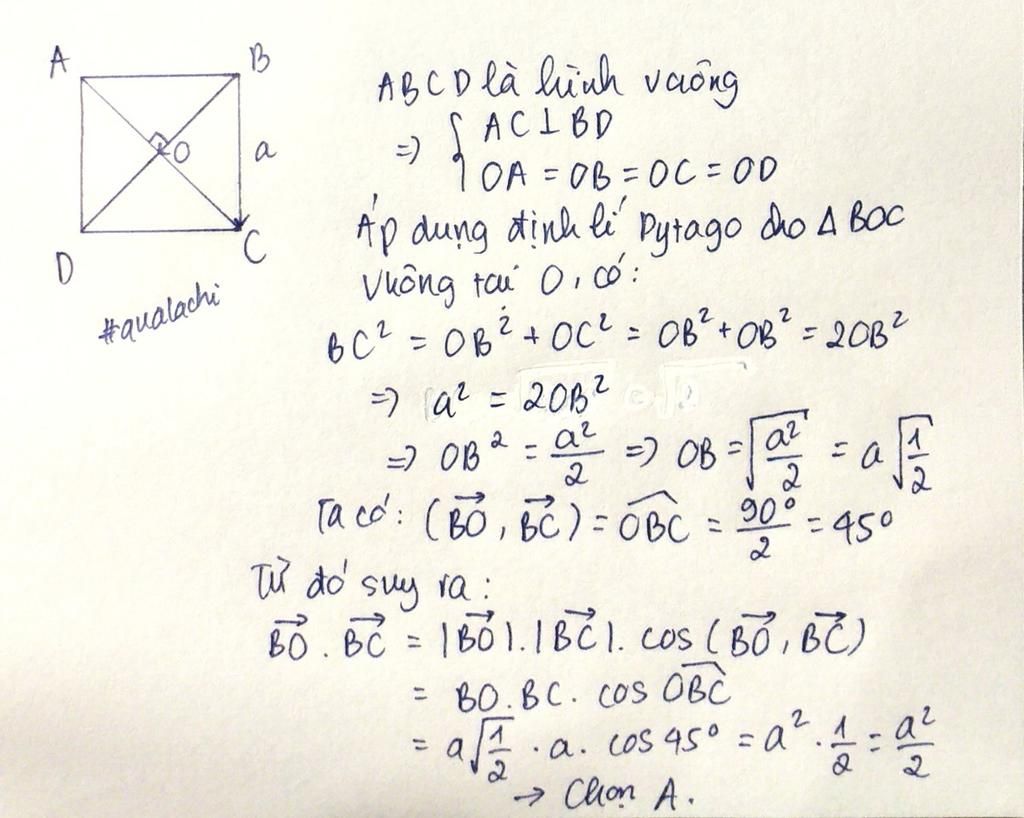 A B
O a
D C
#qualachi
ABCD là hình vuông
=> { AC ⊥ BD
OA = OB = OC = OD
Áp dụng định lí Pytago cho Δ BOC
vuông tại O, có:
BC² = OB² + OC² = OB² + OB² = 2OB²
=> a² = 2OB²
=> OB² = a²/2 => OB = √(a²/2) = a√(1/2)
Ta có: (BO→, BC→) = OBC^ = 90°/2 = 45°
Từ đó suy ra:
BO→ . BC→ = |BO→|.|BC→|. cos(BO→, BC→)
= BO.BC. cos OBC^
= a√(1/2) . a. cos 45° = a² . 1/2 = a²/2
→ Chọn A.